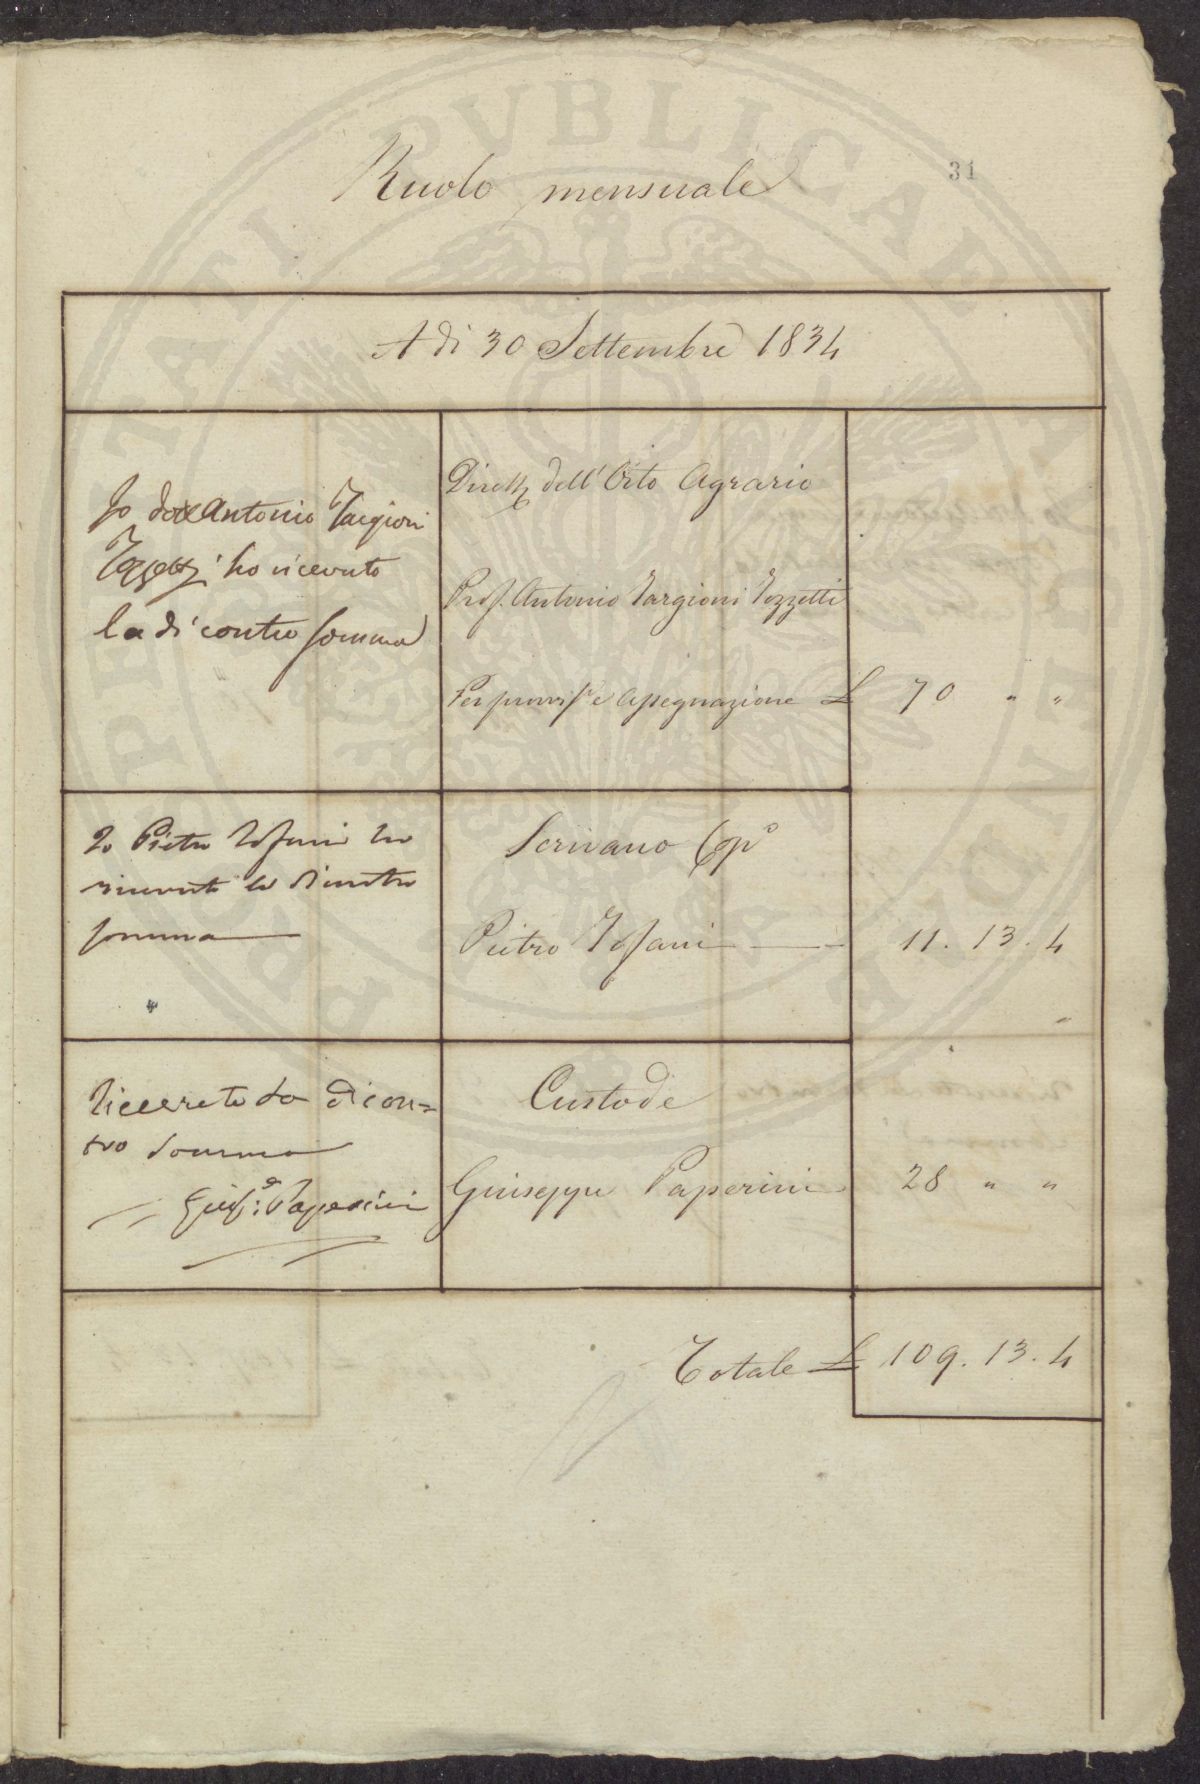 31
Ruolo mensuale
A dì 30 Settembre 1834
Io dott Antonio Targioni
Tozzetti ho ricevuto
la di contro somma
Dirett. dell'Orto Agrario
Prof. Antonio Targioni Tozzetti
Per provis.e e assegnazione £ 70 " "
Io Pietro Tofani ho
ricevuto la dicontro
somma
Scrivano
Pietro Tofani 11. 13. 4
Riceuto la dicon=
tro somma
Gius.e Paperini
Custode
Giuseppe Paperini 28 " "
Totale £ 109. 13. 4
PIETATI PVBLICAE